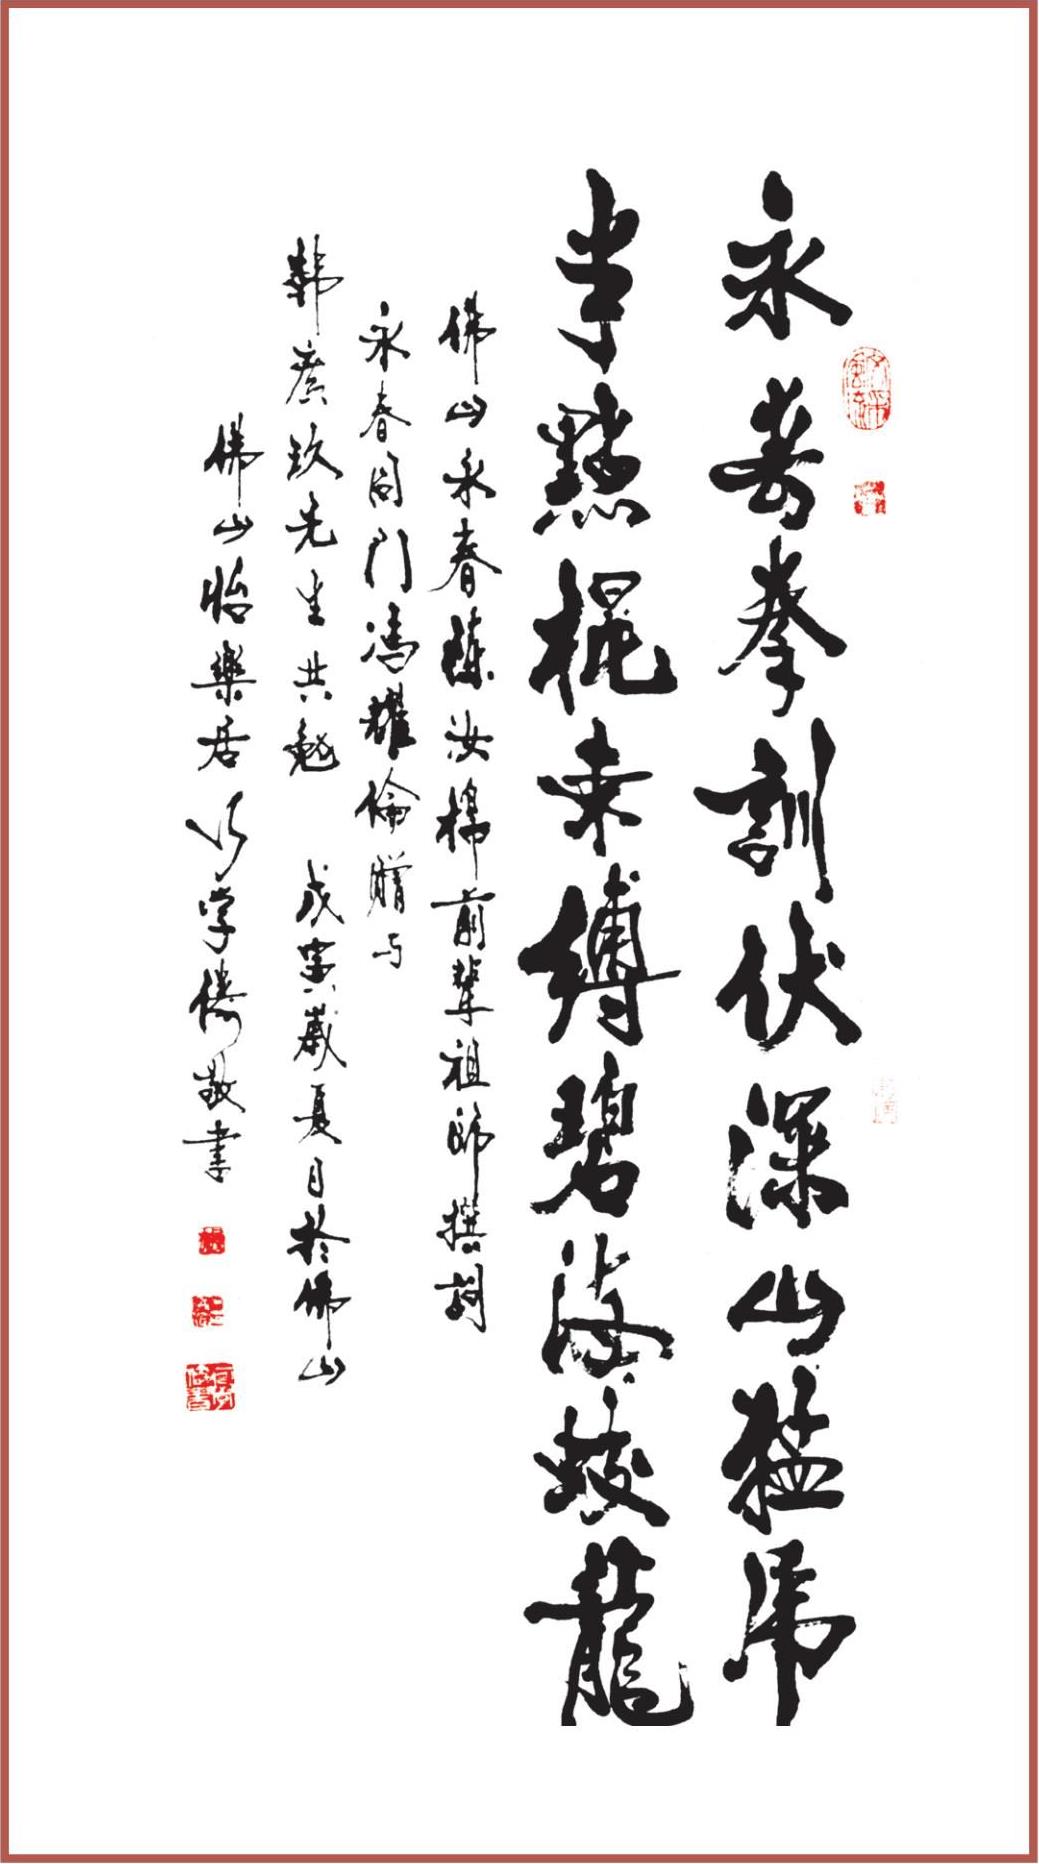 永春拳訓伏深山猛虎
半點棍束縛碧海蛟龍
佛山永春陳汝棉前輩祖師撰詞
永春同門馮耀倫贈与
韓廣玖先生共勉 戊寅歲夏月於佛山
佛山怡樂居 敬書